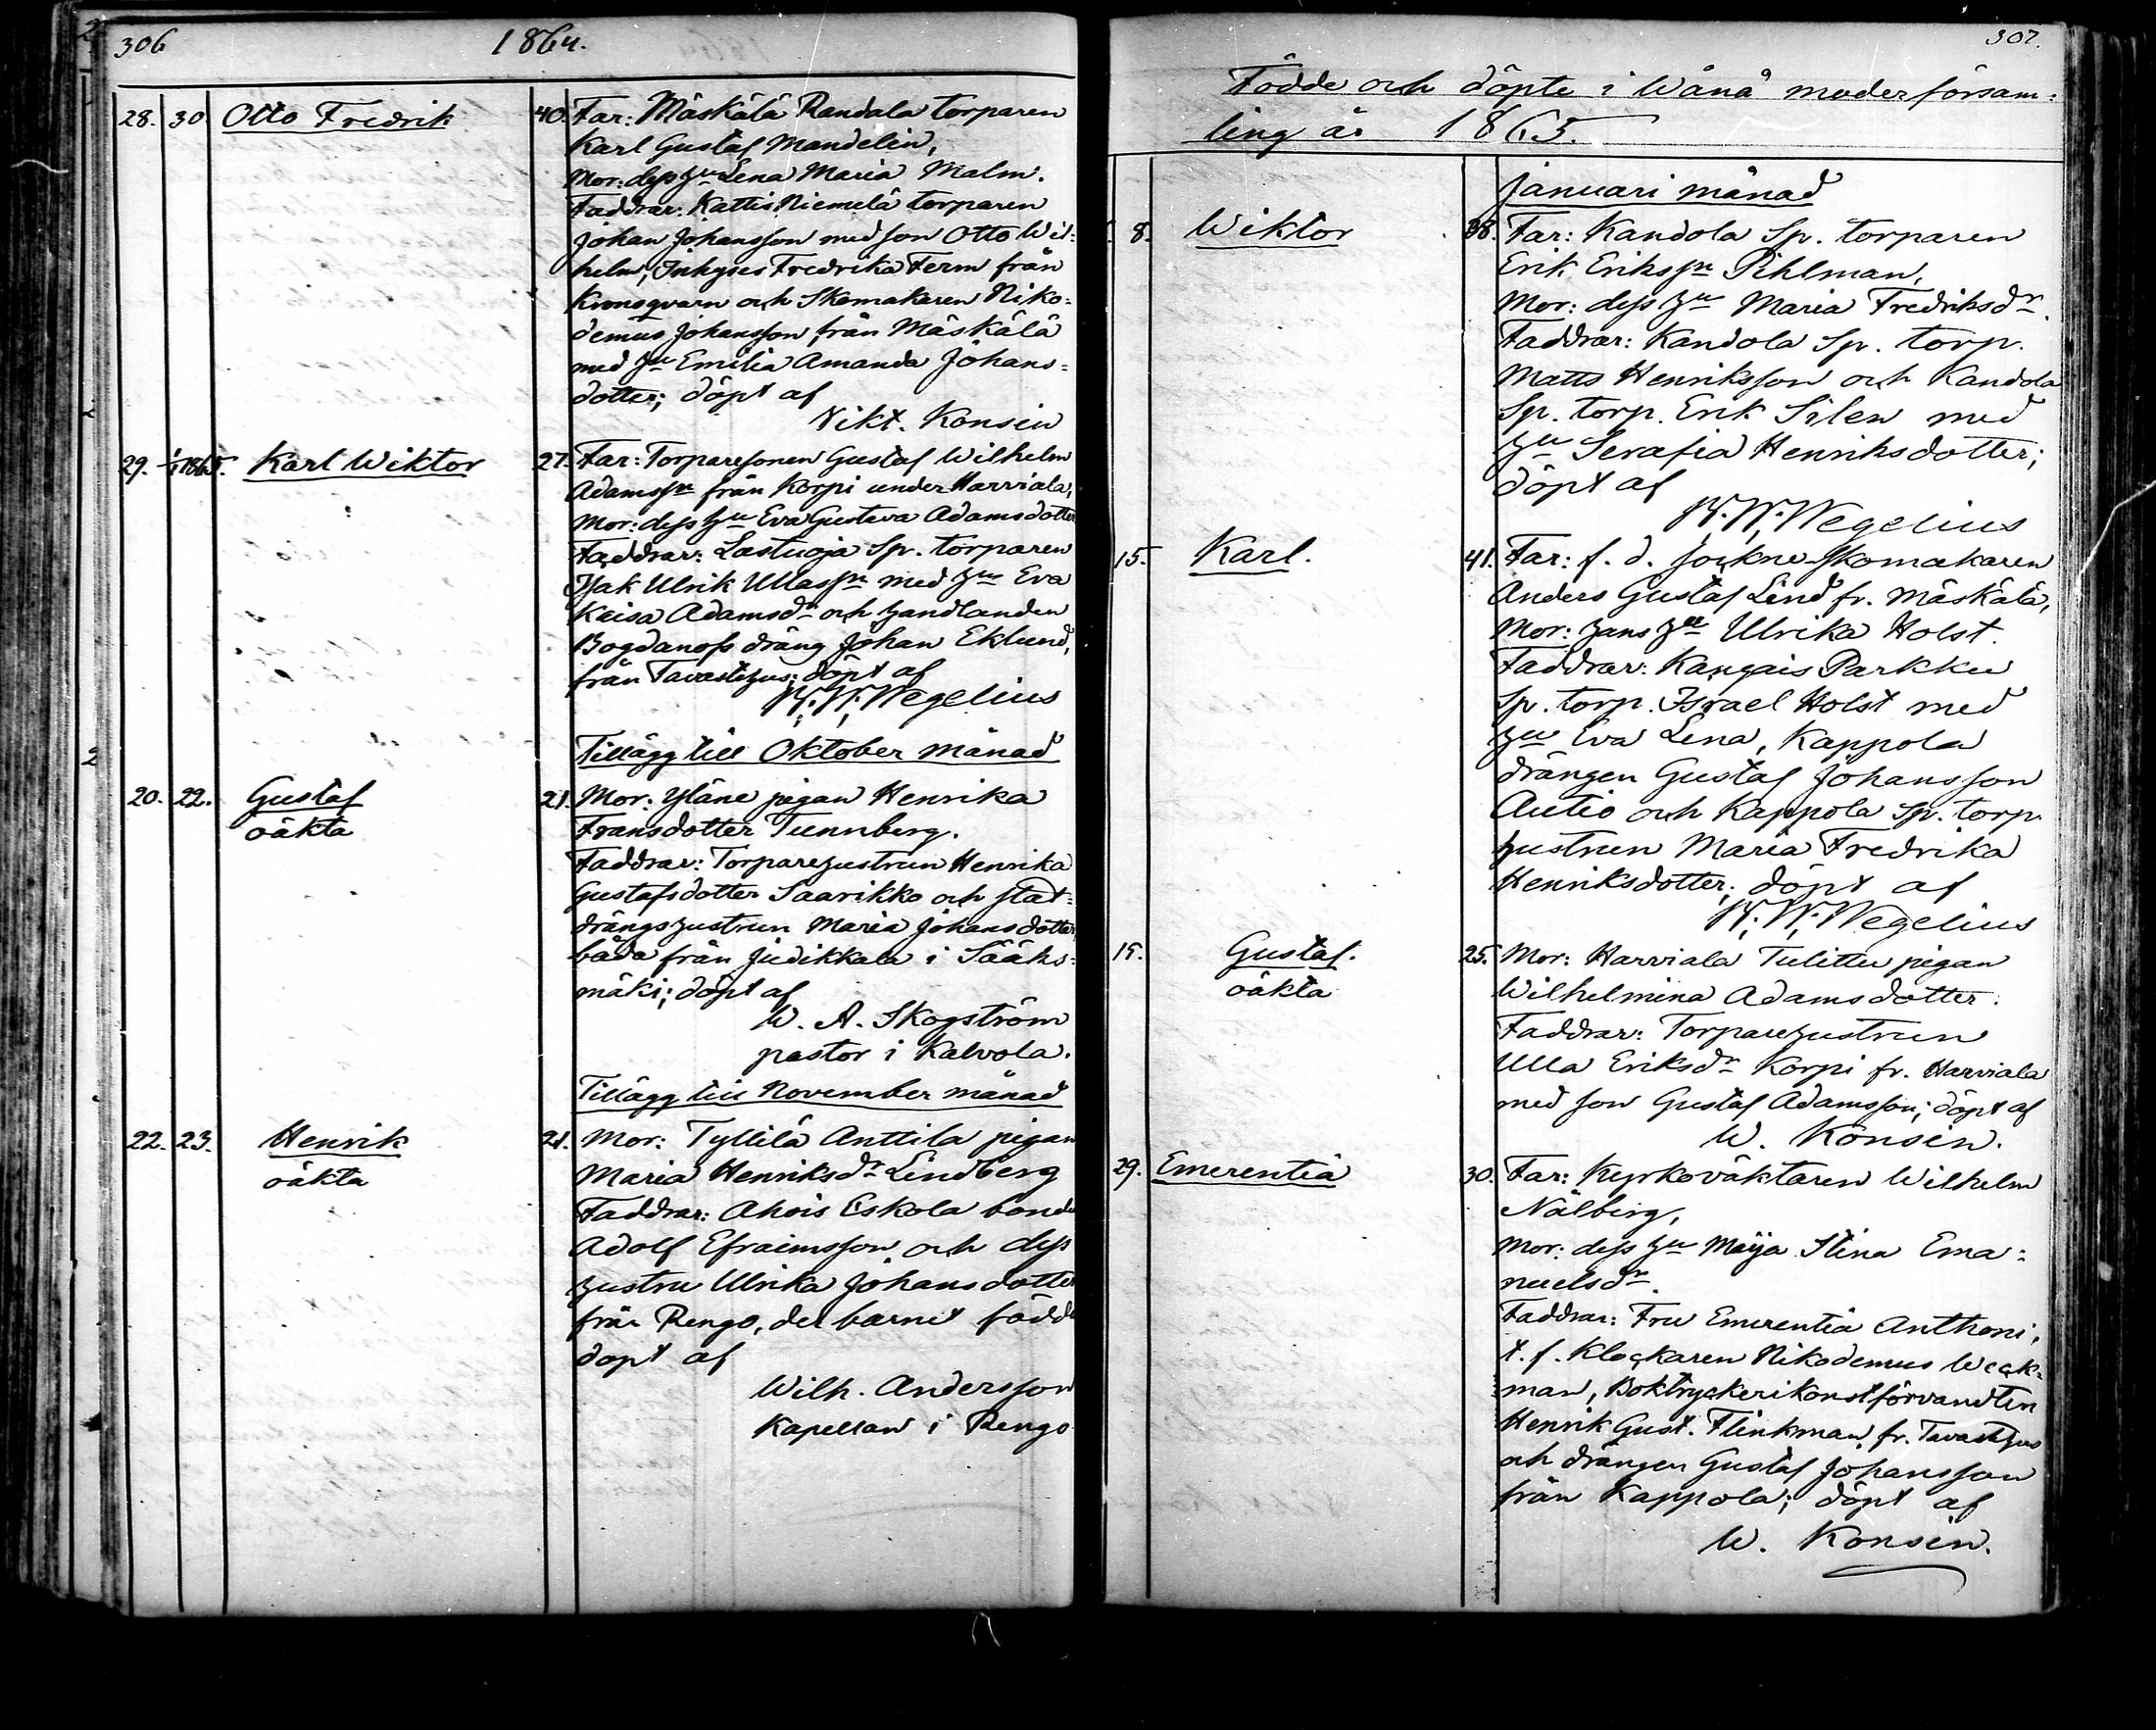 306
1864.
28. 30 Otto Fredrik 40. Far: Mäskälä Randala torparen
Karl Gustaf Mandelin,
Mor: dess hu Lena Maria Malm.
Faddrar: Kattis Niemelä torparen
Johan Johansson med son Otto Wil:
helm, Inhyses Fredrika Ferm från
Kronoqvarn och Skomakaren Niko:
demus Johansson från Mäskälä
med hu Emilia Amanda Johans:
dotter; döpt af
Vikt. Konsin
29. 1/1 1865. Karl Wiktor 27. Far: Torparesonen Gustaf Wilhelm
Adamssn från Korpi under Harviala,
Mor: dess hu Eva Gustava Adamsdotter
Faddrar: Lastuoja Sp. torparen
Isak Ulrik Ullassn med hu Eva
Kaisa Adamsdr och handlanden
Bogdanofs dräng Johan Eklund,
från Tavastehus; döpt af
K. W. Wegelius
Tillägg till Oktober månad
20. 22. Gustaf 21. Mor: Yläne pigan Henrika
oäkta Fransdotter Tunnberg.
Faddrar: Torparehustrun Henrika
Gustafsdotter Saarikko och stat:
drängshustrun Maria Johansdotter
båda från Judikkala i Sääks:
mäki; döpt af
W. A. Skogström
pastor i Kalvola.
Tillägg till November månad
22. 23. Henrik 21. Mor: Tyllilä Anttila pigan
oäkta Maria Henriksdr Lindberg
Faddrar: Ahois Eskola bonde
Adolf Efraimsson och dess
hustru Ulrika Johansdotter
från Rengo, der barnet födde
döpt af
Wilh. Andersson
Kapellan i Rengo
307.
Födde och döpte i Wånå moderförsam:
ling år 1865.
Januari månad
8. Wiktor 38. Far: Kandola Sp. torparen
Erik Erikssn Pihlman,
Mor: dess hu Maria Fredriksdr.
Faddrar: Kandola Sp. torp.
Matts Henriksson och Kandola
Sp. torp. Erik Silen med
hu Serafia Henriksdotter;
döpt af
K. W. Wegelius
15. Karl. 41. Far: f. d. sockne skomakaren
Anders Gustaf Lind fr. Mäskälä,
Mor: hans hu Ulrika Holst.
Faddrar: Kangais Parkku
Sp. torp. Israel Holst med
hu Eva Lena, Kappola
drängen Gustaf Johansson
Autio och Kappola Sp. torp.
hustrun Maria Fredrika
Henriksdotter; döpt af
K. W. Wegelius
19. Gustaf. 25. Mor: Harviala Tulittu pigan
oäkta Wilhelmina Adamsdotter.
Faddrar: Torparehustrun
Ulla Eriksdr Korpi fr. Harviala
med son Gustaf Adamsson; döpt af
W. Konsin.
29. Emerentia 30. Far: Kyrkoväktaren Wilhelm
Nälberg,
Mor: dess hu Maija Stina Ema:
nuelsdr.
Faddrar: Fru Emerentia Anthoni,
t. f. Klockaren Nikodemus Weck:
man, Boktryckerikonstförvandten
Henrik Gust. Flinkman fr. Tavastehus
och drängen Gustaf Johansson
från Kappola; döpt af
W. Konsin.